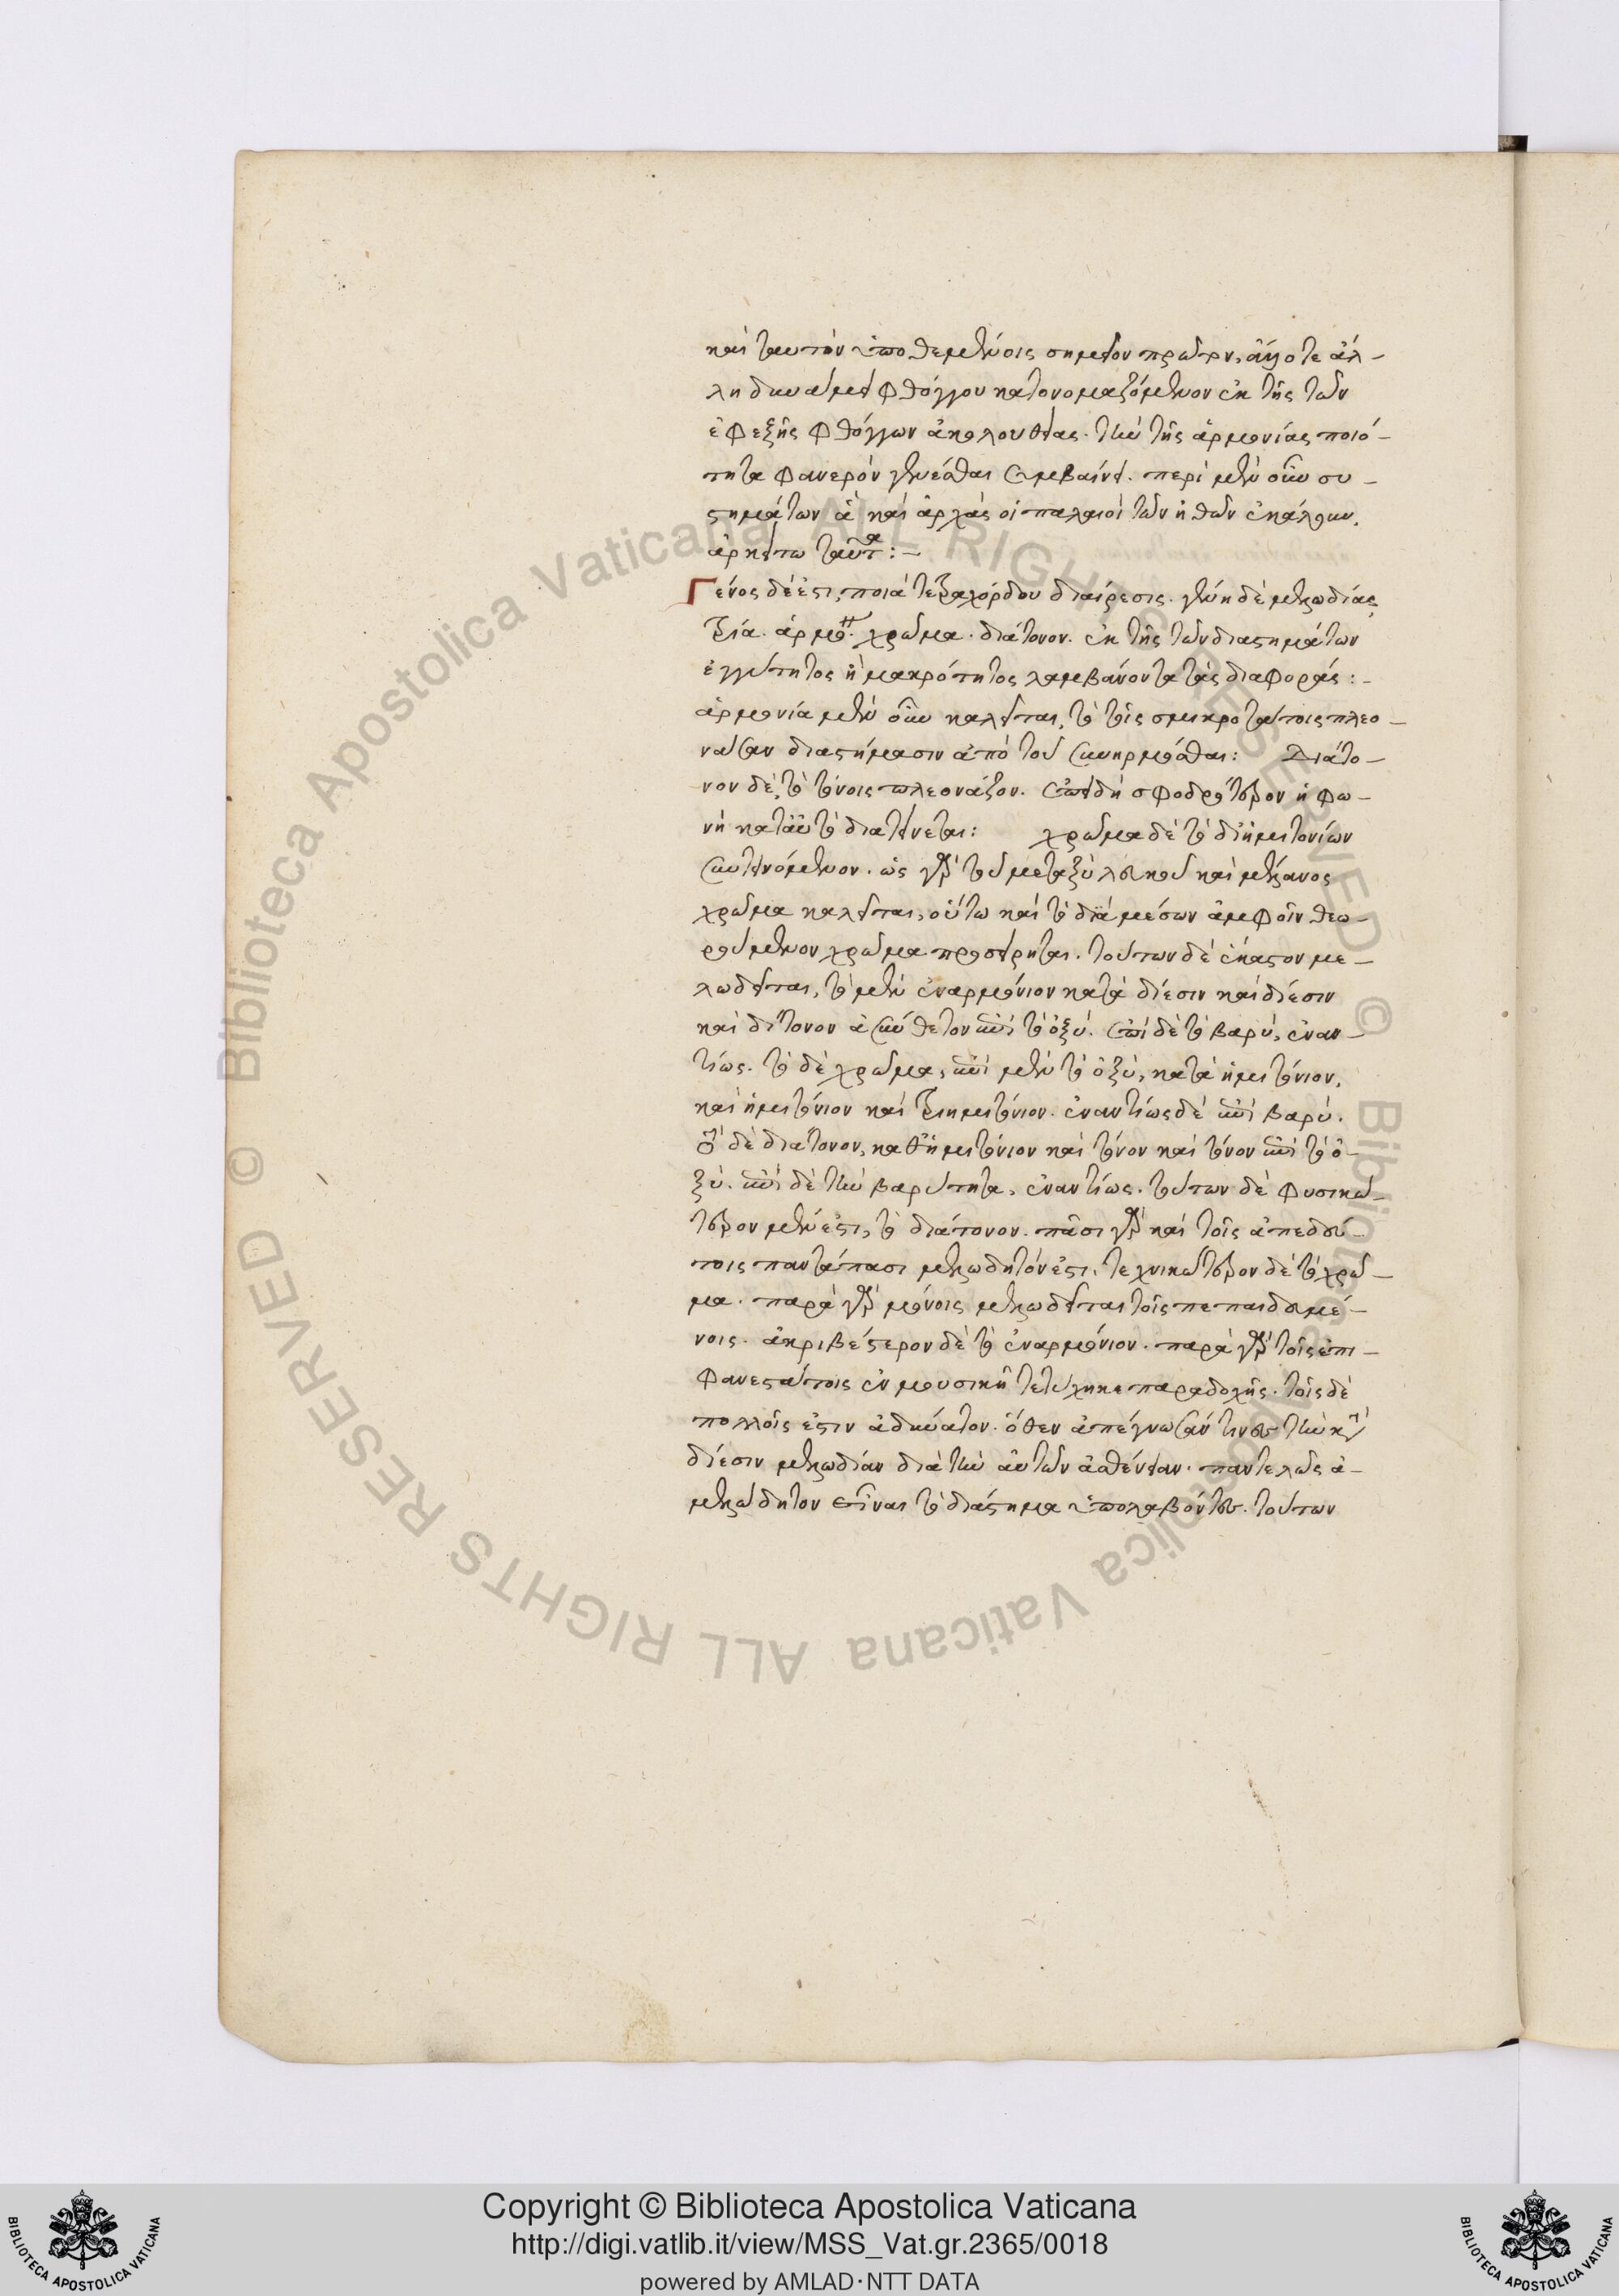 καὶ ταυτὸν ὑποθεμένοις σημεῖον πρῶτον, ἄλλοτε ἄλ-
λῃ δυνάμει φθόγγου κατονομαζόμενον ἐκ τῆς τῶν
ἐφεξῆς φθόγγων ἀκολουθίας. τὴν τῆς ἁρμονίας ποιό-
τητα φανερὸν γενέσθαι συμβαίνει. περὶ μὲν οὖν συ-
στημάτων ἃ καὶ ἀρχὰς οἱ παλαιοὶ τῶν ἠθῶν ἐκάλουν,
ἀρκείτω ταῦτα:-
Γένος δέ ἐστι, ποιὰ τετραχόρδου διαίρεσις. γένη δὲ μελωδίας
τρία. ἁρμο. χρῶμα. διάτονον. ἐκ τῆς τῶν διαστημάτων
ἐγγύτητος ἢ μακρότητος λαμβάνοντα τὰς διαφοράς:-
ἁρμονία μὲν οὖν καλεῖται, τὸ τοῖς σμικροτάτοις πλεο-
νάσαν διαστήμασιν ἀπὸ τοῦ συνηρμόσθαι: Διάτο-
νον δὲ, τὸ τόνοις πλεονάζον. ἐπειδὴ σφοδρότερον ἡ φω-
νὴ κατ' αὐτὸ διατείνεται: χρῶμα δὲ τὸ δι' ἡμιτονίων
συντεινόμενον. ὡς γὰρ τὸ μεταξὺ λευκοῦ καὶ μέλανος
χρῶμα καλεῖται, οὕτω καὶ τὸ διὰ μέσων ἀμφοῖν θεω-
ρούμενον χρῶμα προσείρηται. τούτων δὲ ἕκαστον με-
λωδεῖται, τὸ μὲν ἐναρμόνιον κατὰ δίεσιν καὶ δίεσιν
καὶ δίτονον ἀσύνθετον ἐπὶ τὸ ὀξύ. ἐπὶ δὲ τὸ βαρὺ, ἐναν-
τίως. τὸ δὲ χρῶμα, ἐπὶ μὲν τὸ ὀξὺ, κατὰ ἡμιτόνιον,
καὶ ἡμιτόνιον καὶ τριημιτόνιον. ἐναντίως δὲ ἐπὶ βαρύ.
τὸ δὲ διάτονον, καθ' ἡμιτόνιον καὶ τόνον καὶ τόνον ἐπὶ τὸ ὀ-
ξύ. ἐπὶ δὲ τὴν βαρύτητα, ἐναντίως. τούτων δὲ φυσικώ-
τερον μέν ἐστι, τὸ διάτονον. πᾶσι γὰρ καὶ τοῖς ἀπαιδεύ-
τοις παντάπασι μελωδητόν ἐστι. τεχνικώτερον δὲ τὸ χρῶ-
μα. παρὰ γὰρ μόνοις μελωδεῖται τοῖς πεπαιδευμέ-
νοις. ἀκριβέστερον δὲ τὸ ἐναρμόνιον. παρὰ γὰρ τοῖς ἐπι-
φανεστάτοις ἐν μουσικῇ τετύχηκε παραδοχῆς. τοῖς δὲ
πολλοῖς ἐστιν ἀδύνατον. ὅθεν ἀπέγνωσάν τινες τὴν κατὰ
δίεσιν μελωδίαν διὰ τὴν αὐτῶν ἀσθένειαν. παντελῶς ἀ-
μελώδητον εἶναι τὸ διάστημα ὑπολαβόντες. τούτων
Copyright © Biblioteca Apostolica Vaticana
http://digi.vatlib.it/view/MSS_Vat.gr.2365/0018
powered by AMLAD·NTT DATA